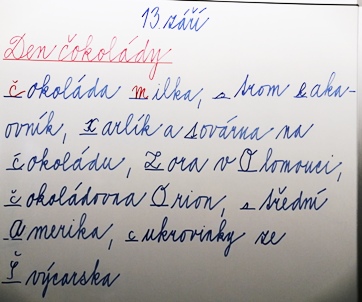 13. září
Den čokolády
čokoláda milka, strom kaka-
ovník, Karlík a továrna na
čokoládu, Zora v Olomouci,
čokoládovna Orion, střední
Amerika, cukrovinky ze
Švýcarska